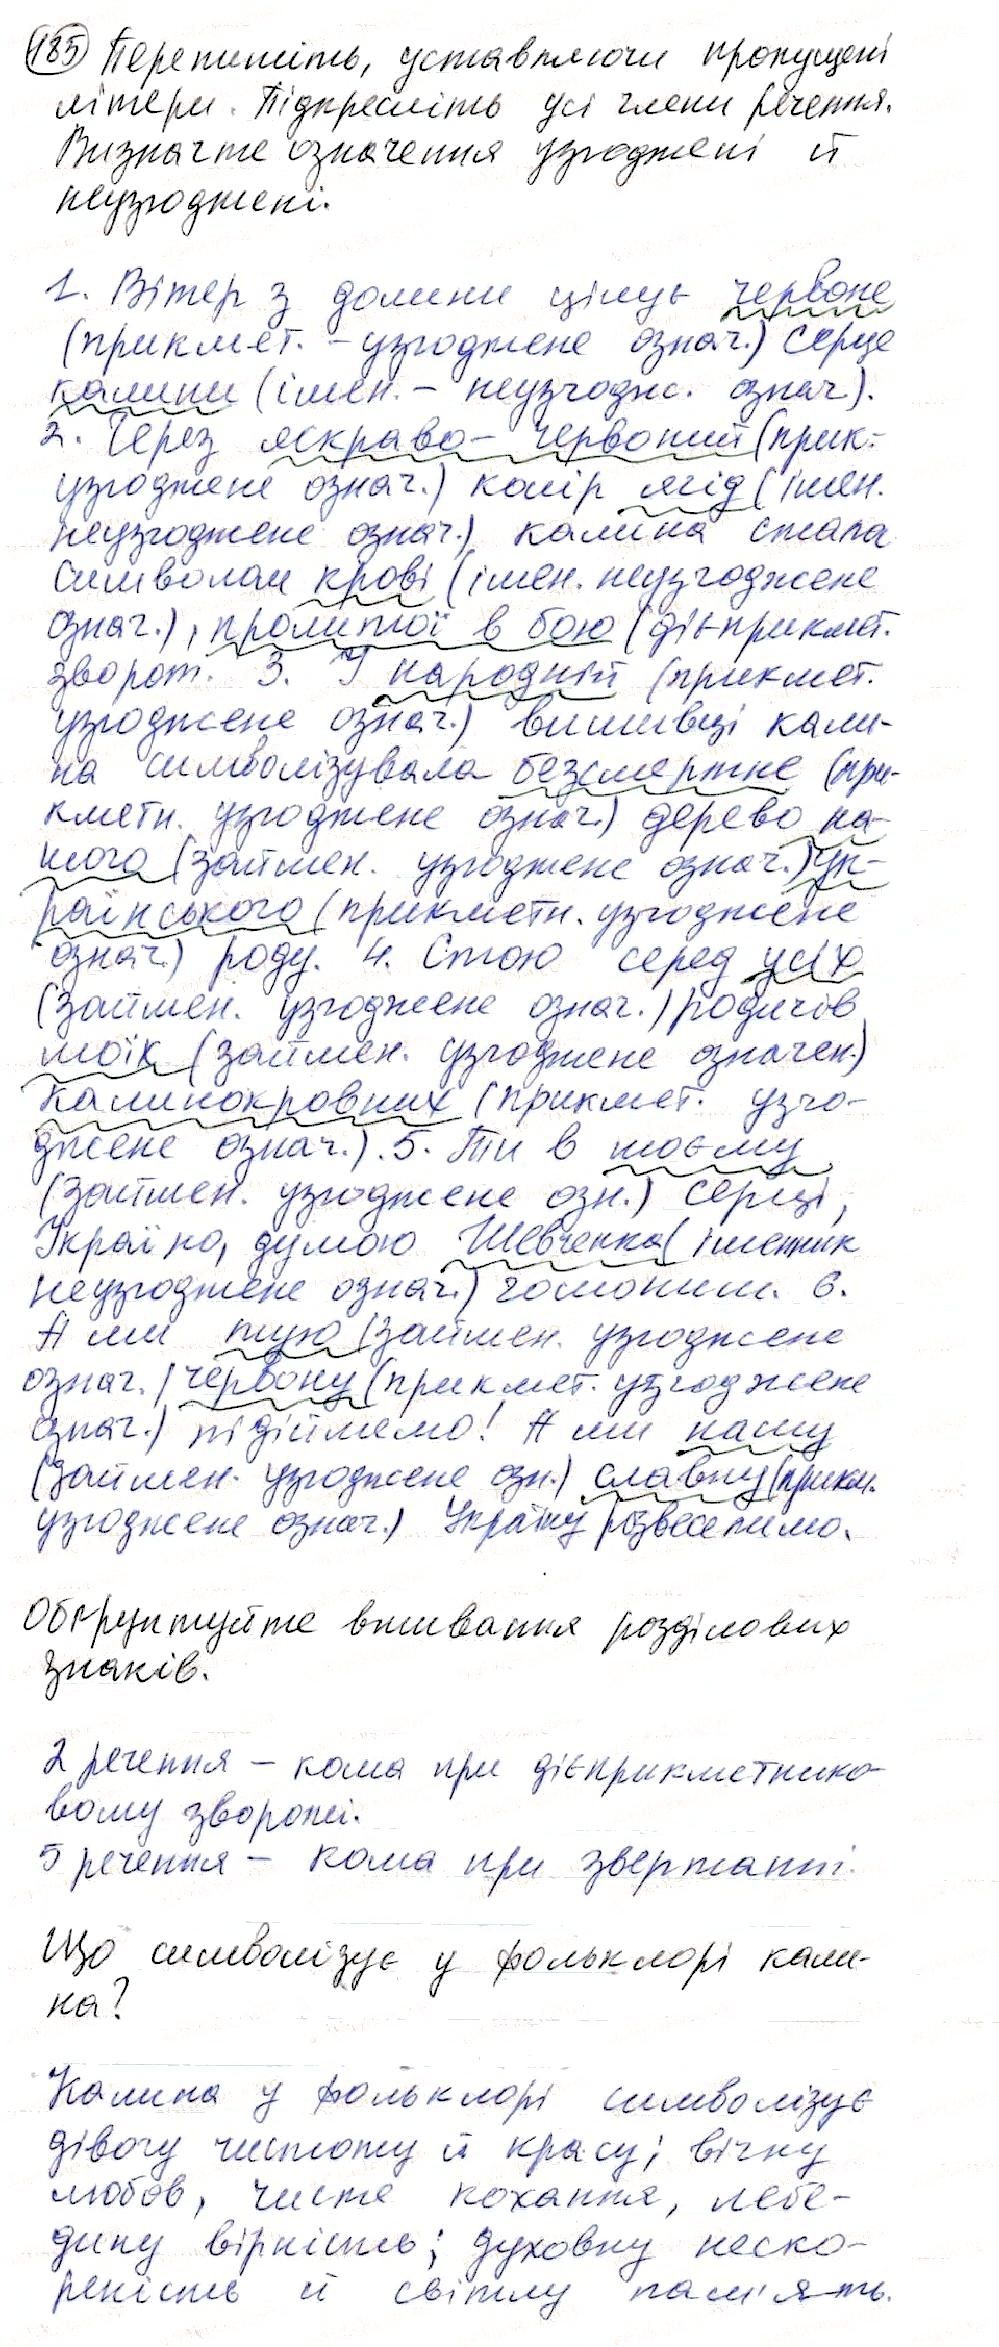 185 Перепишіть, уставляючи пропущені
літери. Підкресліть усі члени речення.
Визначте означення узгоджені й
неузгоджені.
1. Вітер з долини цілує червоне
(прикмет. - узгоджене означ.) серце
калини (імен. - неузгодж. означ.).
2. Через яскраво-червоний (прик.-
узгоджене означ.) колір ягід (імен.
неузгоджене означ.) калина стала
символом крові (імен. неузгоджене
означ.), пролитої в бою (дієприкмет.
зворот. 3. У народній (прикмет.
узгоджене означ.) вишивці кали-
на символізувала безсмертне (при-
кметн. узгоджене означ.) дерево на-
шого (займен. узгоджене означ.) ук-
раїнського (прикметн. узгоджене
означ.) роду. 4. Стою серед усіх
(займен. узгоджене означ.) родичів
моїх (займен. узгоджене означен.)
калинокровних (прикмет. узго-
джене означ.). 5. Ти в моєму
(займен. узгоджене озн.) серці,
Україно, думою Шевченка (іменник
неузгоджене означ.) гомониш. 6.
А ми тую (займен. узгоджене
означ.) червону (прикмет. узгоджене
означ.) підіймемо! А ми нашу
(займен. узгоджене озн.) славну (прикм.
узгоджене означ.) Україну розвеселимо.
Обґрунтуйте вживання розділових
знаків.
2 речення - кома при дієприкметнико-
вому звороті.
5 речення - кома при звертанні.
Що символізує у фольклорі кали-
на?
Калина у фольклорі символізує
дівочу чистоту й красу; вічну
любов, чисте кохання, лебе-
дину вірність; духовну неско-
реність й світлу пам'ять.